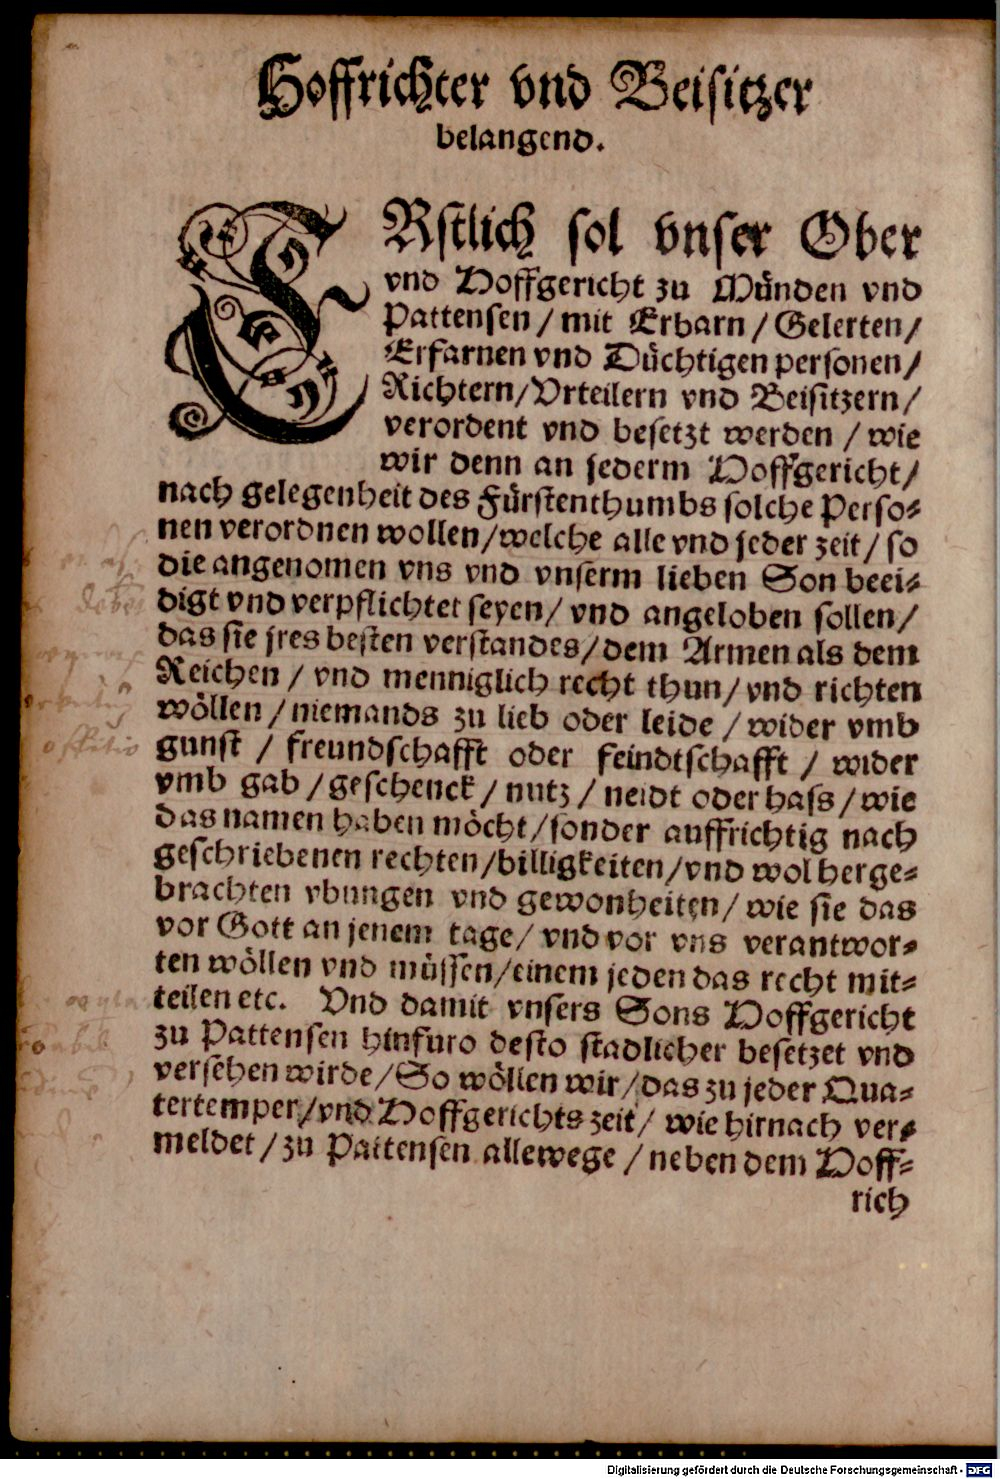 Hoffrichter vnd Beisitzer
belangend.
ERstlich sol vnser Ober
vnd Hoffgericht zu Münden vnd
Pattensen / mit Erbarn / Gelerten /
Erfarnen vnd Düchtigen personen /
Richtern / Vrteilern vnd Beisitzern /
verordent vnd besetzt werden / wie
wir denn an jederm Hoffgericht /
nach gelegenheit des Fürstenthumbs solche Perso⸗
nen verordnen wollen / welche alle vnd jeder zeit / so
die angenomen vns vnd vnserm lieben Son beei⸗
digt vnd verpflichtet seyen / vnd angeloben sollen /
das sie jres besten verstandes / dem Armen als dem
Reichen / vnd menniglich recht thun / vnd richten
wöllen / niemands zu lieb oder leide / wider vmb
gunst / freundschafft oder feindtschafft / wider
vmb gab / geschenck / nutz / neidt oder hass / wie
das namen haben möcht / sonder auffrichtig nach
geschriebenen rechten / billigkeiten / vnd wol herge⸗
brachten vbungen vnd gewonheiten / wie sie das
vor Gott an jenem tage / vnd vor vns verantwor⸗
ten wöllen vnd müssen / einem jeden das recht mit⸗
teilen etc. Vnd damit vnsers Sons Hoffgericht
zu Pattensen hinfuro desto stadlicher besetzet vnd
versehen wirde / So wöllen wir / das zu jeder Qua⸗
tertemper / vnd Hoffgerichts zeit / wie hirnach ver⸗
meldet / zu Pattensen allewege / neben dem Hoff⸗
rich
Digitalisierung gefördert durch die Deutsche Forschungsgemeinschaft - DFG